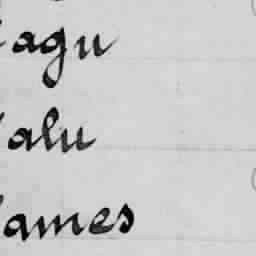 agu
alu
ames